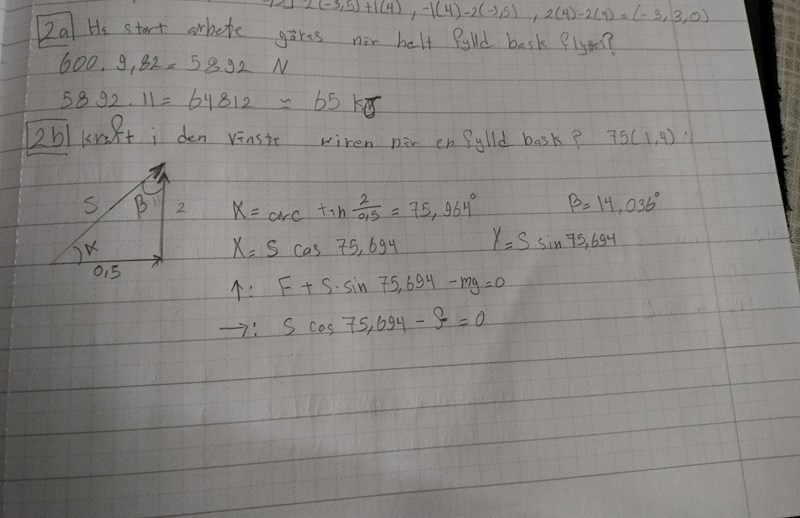 2(-3,5)+1(4), -1(4)-2(-3,5), 2(4)-2(4)=(-3,3,0)
2a) Hs start arbete göres när helt fylld bask flyttas?
600.9,82=5892 N
5892.11=64812 ≈ 65 kJ
2b) kraft i den vänste wiren när en fylld bask? 75(1,4)
S β 2
α = arc tan 2/0,5 = 75,964° β=14,036°
α
0,5
X= S cos 75,694 Y= S sin 75,694
↑: F + S·sin 75,694 -mg=0
→: S cos 75,694 - f = 0